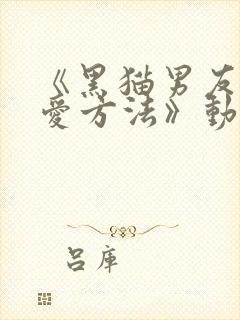 《黑猫男友
爱方法》動
吕库